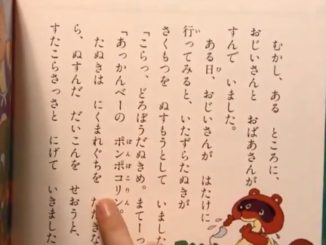 むかし、ある ところに、
おじいさんと おばあさんが
すんで いました。
ある日、おじいさんが はたけに
行ってみると、いたずらたぬきが
さくもつを ぬすもうとして いました
「こらっ、どろぼうだぬきめ。まてーっ
「あっかんべーの ポンポコリン。
たぬきは にくまれぐちを
ら、ぬすんだ だいこんを せおうと、
すたこらさっさと にげて いきました